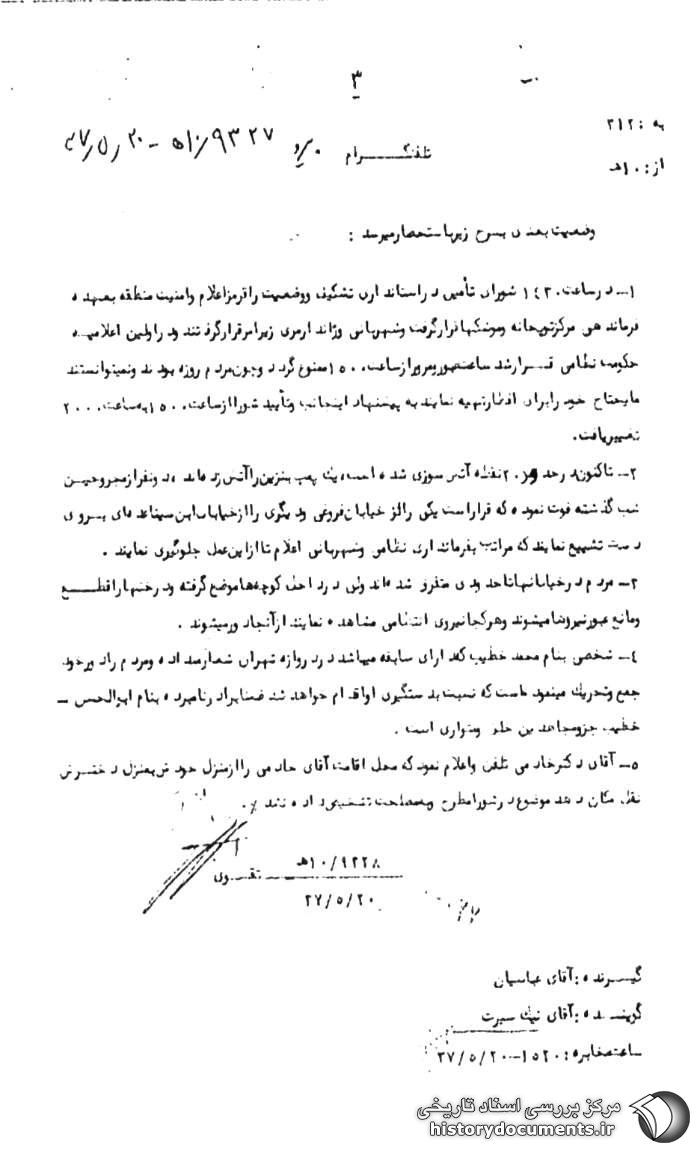 ۳
به : ۳۱۲
از : ۱۰هـ
تلفنگـــرام
۱۰/۹۳۲۷هـ - ۲۰
وضعیت بعدی بشرح زیرباستحضارمیرسد :
۱ــ درساعت ۱۴۳۰ شورای تأمین دراستانداری تشکیل ووضعیت راقرمزاعلام وامنیت منطقه بعهده
فرماندهی مرکزتوپخانه وموشکهاقرارگرفت وشهربانی وژاندارمری زیرامرقرارگرفتند ودراولین اعلامیـه
حکومت نظامی قــرارشد ساعت عبورومروراز ساعت ۱۵۰۰ ممنوع گردد وچون مردم روزه بودند ونمیتوانستند
مایحتاج خودرابرای افطارتهیه نمایند به پیشنهاد اینجانب وتأیید شورااز ساعت ۱۵۰۰ به ساعت ۲۰۰۰
تغییریافت.
۲ــ تاکنون درحدود ۲۰ نقطه آتش سوزی شده است، یک پمپ بنزین راآتش زده اند ، دونفرازمجروحیـن
شب گذشته فوت نموده که قراراست یکی راازخیابان فروغی ودیگری راازخیابان ابن سیناعده ای بسوی
دست تشییع نمایند که مراتب بفرمانداری نظامی وشهربانی اعلام تاازاین عمل جلوگیری نمایند .
۳ــ مردم درخیابانهاتاحدودی متفرق شده اند ولی درداخل کوچه هاموضع گرفته ودرختهاراقطــع
ومانع عبورنیروهامیشوند وهرکجانیروی انتظامی مشاهده نمایند ازآنجادورمیشوند .
۴ــ شخصی بنام محمد خطیب که دارای سابقه میباشد دردروازه تهران شعارمیداده ومردم رادورخود
جمع وتحریک مینمود که نسبت بدستگیری اواقدام خواهد شد ضمنابرادرنامبرده بنام ابوالحسن ــ
خطیب جزومجاهدین خلق ومتواری است .
۵ــ آقای دکترخادمی تلفنی واعلام نمود که محل اقامت آقای خادمی راازمنزل خودش بمنزل دخترش
نقل مکان دهد موضوع درشورامطرح وبمصلحت تشخیص داده نشد .
۱۰/۹۳۲۸هـ
تقـــوی
۲۷/۵/۲۰
گیـــرنده : آقای عباسیان
گوینـــده : آقای نیک سیرت
ساعت مخابره : ۱۵۲۰-۲۷/۵/۲۰
مرکز بررسی اسناد تاریخی
historydocuments.ir